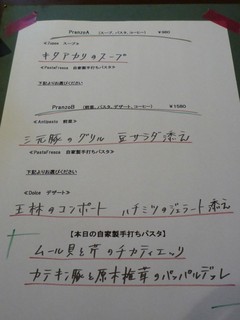 PranzoA （スープ、パスタ、コーヒー） ￥980
≪Zuppa スープ≫
キタアカリのスープ
≪PastaFresca 自家製手打ちパスタ≫
下記よりお選びください
PranzoB （前菜、パスタ、デザート、コーヒー） ￥1580
≪Antipasto 前菜≫
三元豚のグリル 豆サラダ添え
≪PastaFresca 自家製手打ちパスタ≫
下記よりお選びください
≪Dolce デザート≫
王林のコンポート ハチミツのジェラート添え
【本日の自家製手打ちパスタ】
ムール貝と芹のチカティエッリ
カテキン豚と原木椎茸のパッパルデッレ